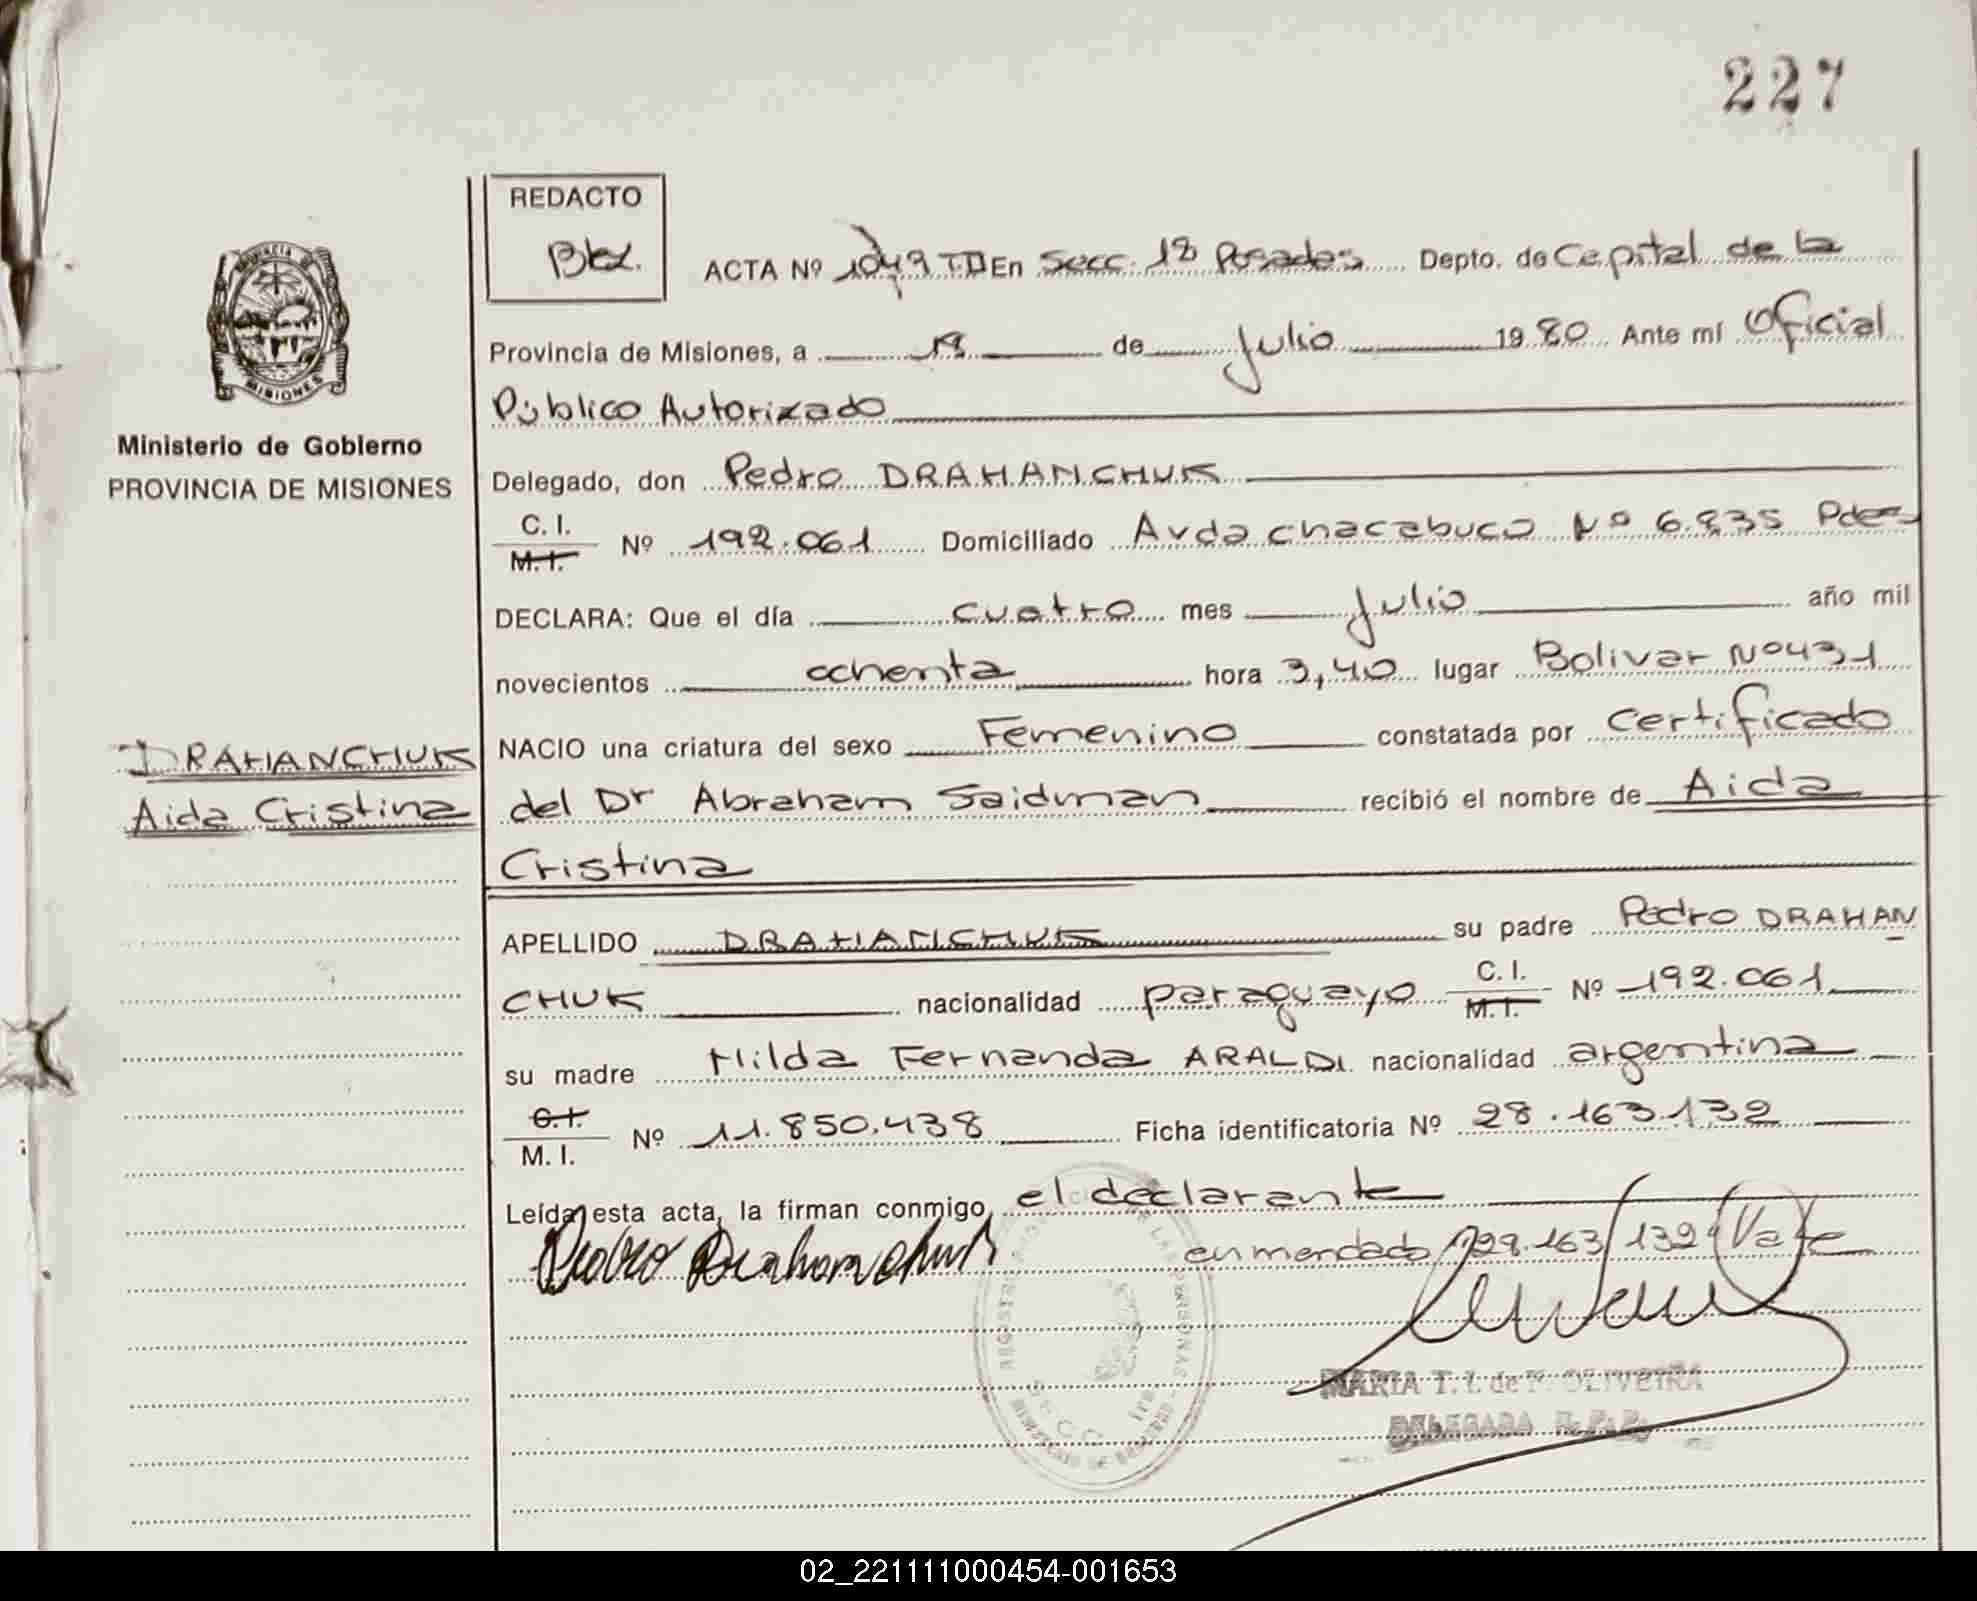 227
REDACTO
Ministerio de Gobierno
PROVINCIA DE MISIONES
MISIONES
ACTA Nº 1049 T.D En Secc. 18 Posadas Depto. de Capital de la
Provincia de Misiones, a de Julio 1980 Ante mí Oficial
Público Autorizado
Delegado, don Pedro DRAHANCHUK
C. I.
M. I. Nº 192.061 Domiciliado Avda chacabuco Nº 6.835 Pdas
DECLARA: Que el día cuatro mes Julio año mil
novecientos ochenta hora 3,40 lugar Bolivar Nº 431
NACIO una criatura del sexo Femenino constatada por certificado
DRAHANCHUK
Aida Cristina
del Dr Abraham Saidman recibió el nombre de Aida
Cristina
APELLIDO DRAHANCHUK su padre Pedro DRAHAN
CHUK nacionalidad paraguayo C. I. M. I. Nº 192.061
su madre Hilda Fernanda ARALDI nacionalidad argentina
C. I.
M. I. Nº 11.850.438 Ficha identificatoria Nº 28.163.132
Leída esta acta, la firman conmigo el declarante
Pedro Drahanchuk enmendado 28.163/132 Vale
MARIA T. I. de F. OLIVEIRA
DELEGADA R. P. P.
02_221111000454-001653